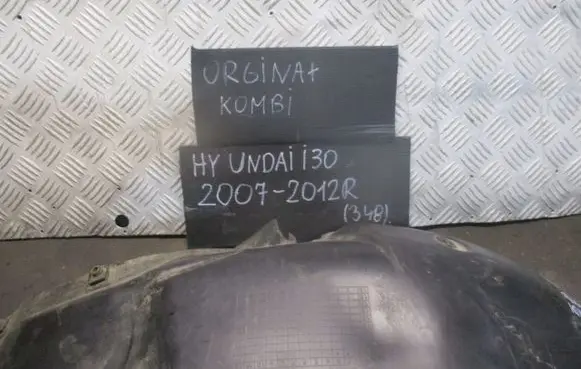 ORGINAŁ
KOMBI
HYUNDAI i30
2007-2012R
(348)